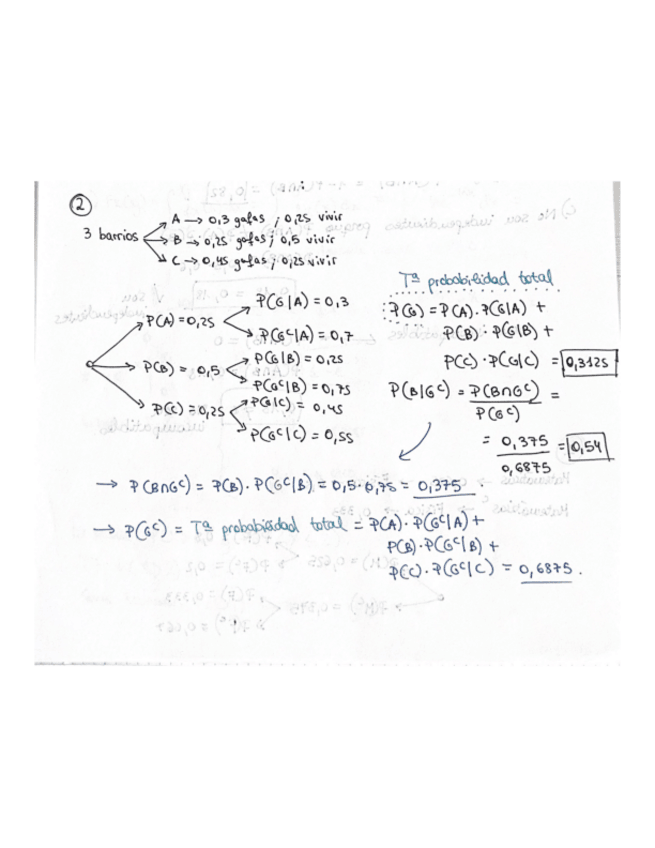 2
3 barrios
A → 0,3 gafas ; 0,25 vivir
B → 0,25 gafas ; 0,5 vivir
C → 0,45 gafas ; 0,25 vivir
P(A) = 0,25
P(G|A) = 0,3
P(Gᶜ|A) = 0,7
P(B) = 0,5
P(G|B) = 0,25
P(Gᶜ|B) = 0,75
P(C) = 0,25
P(G|C) = 0,45
P(Gᶜ|C) = 0,55
Tª probabilidad total
P(G) = P(A) · P(G|A) +
P(B) · P(G|B) +
P(C) · P(G|C) = 0,3125
P(B|Gᶜ) = P(B∩Gᶜ) / P(Gᶜ) =
= 0,375 / 0,6875 = 0,54
→ P(B∩Gᶜ) = P(B) · P(Gᶜ|B) = 0,5 · 0,75 = 0,375.
→ P(Gᶜ) = Tª probabilidad total = P(A) · P(Gᶜ|A) +
P(B) · P(Gᶜ|B) +
P(C) · P(Gᶜ|C) = 0,6875.